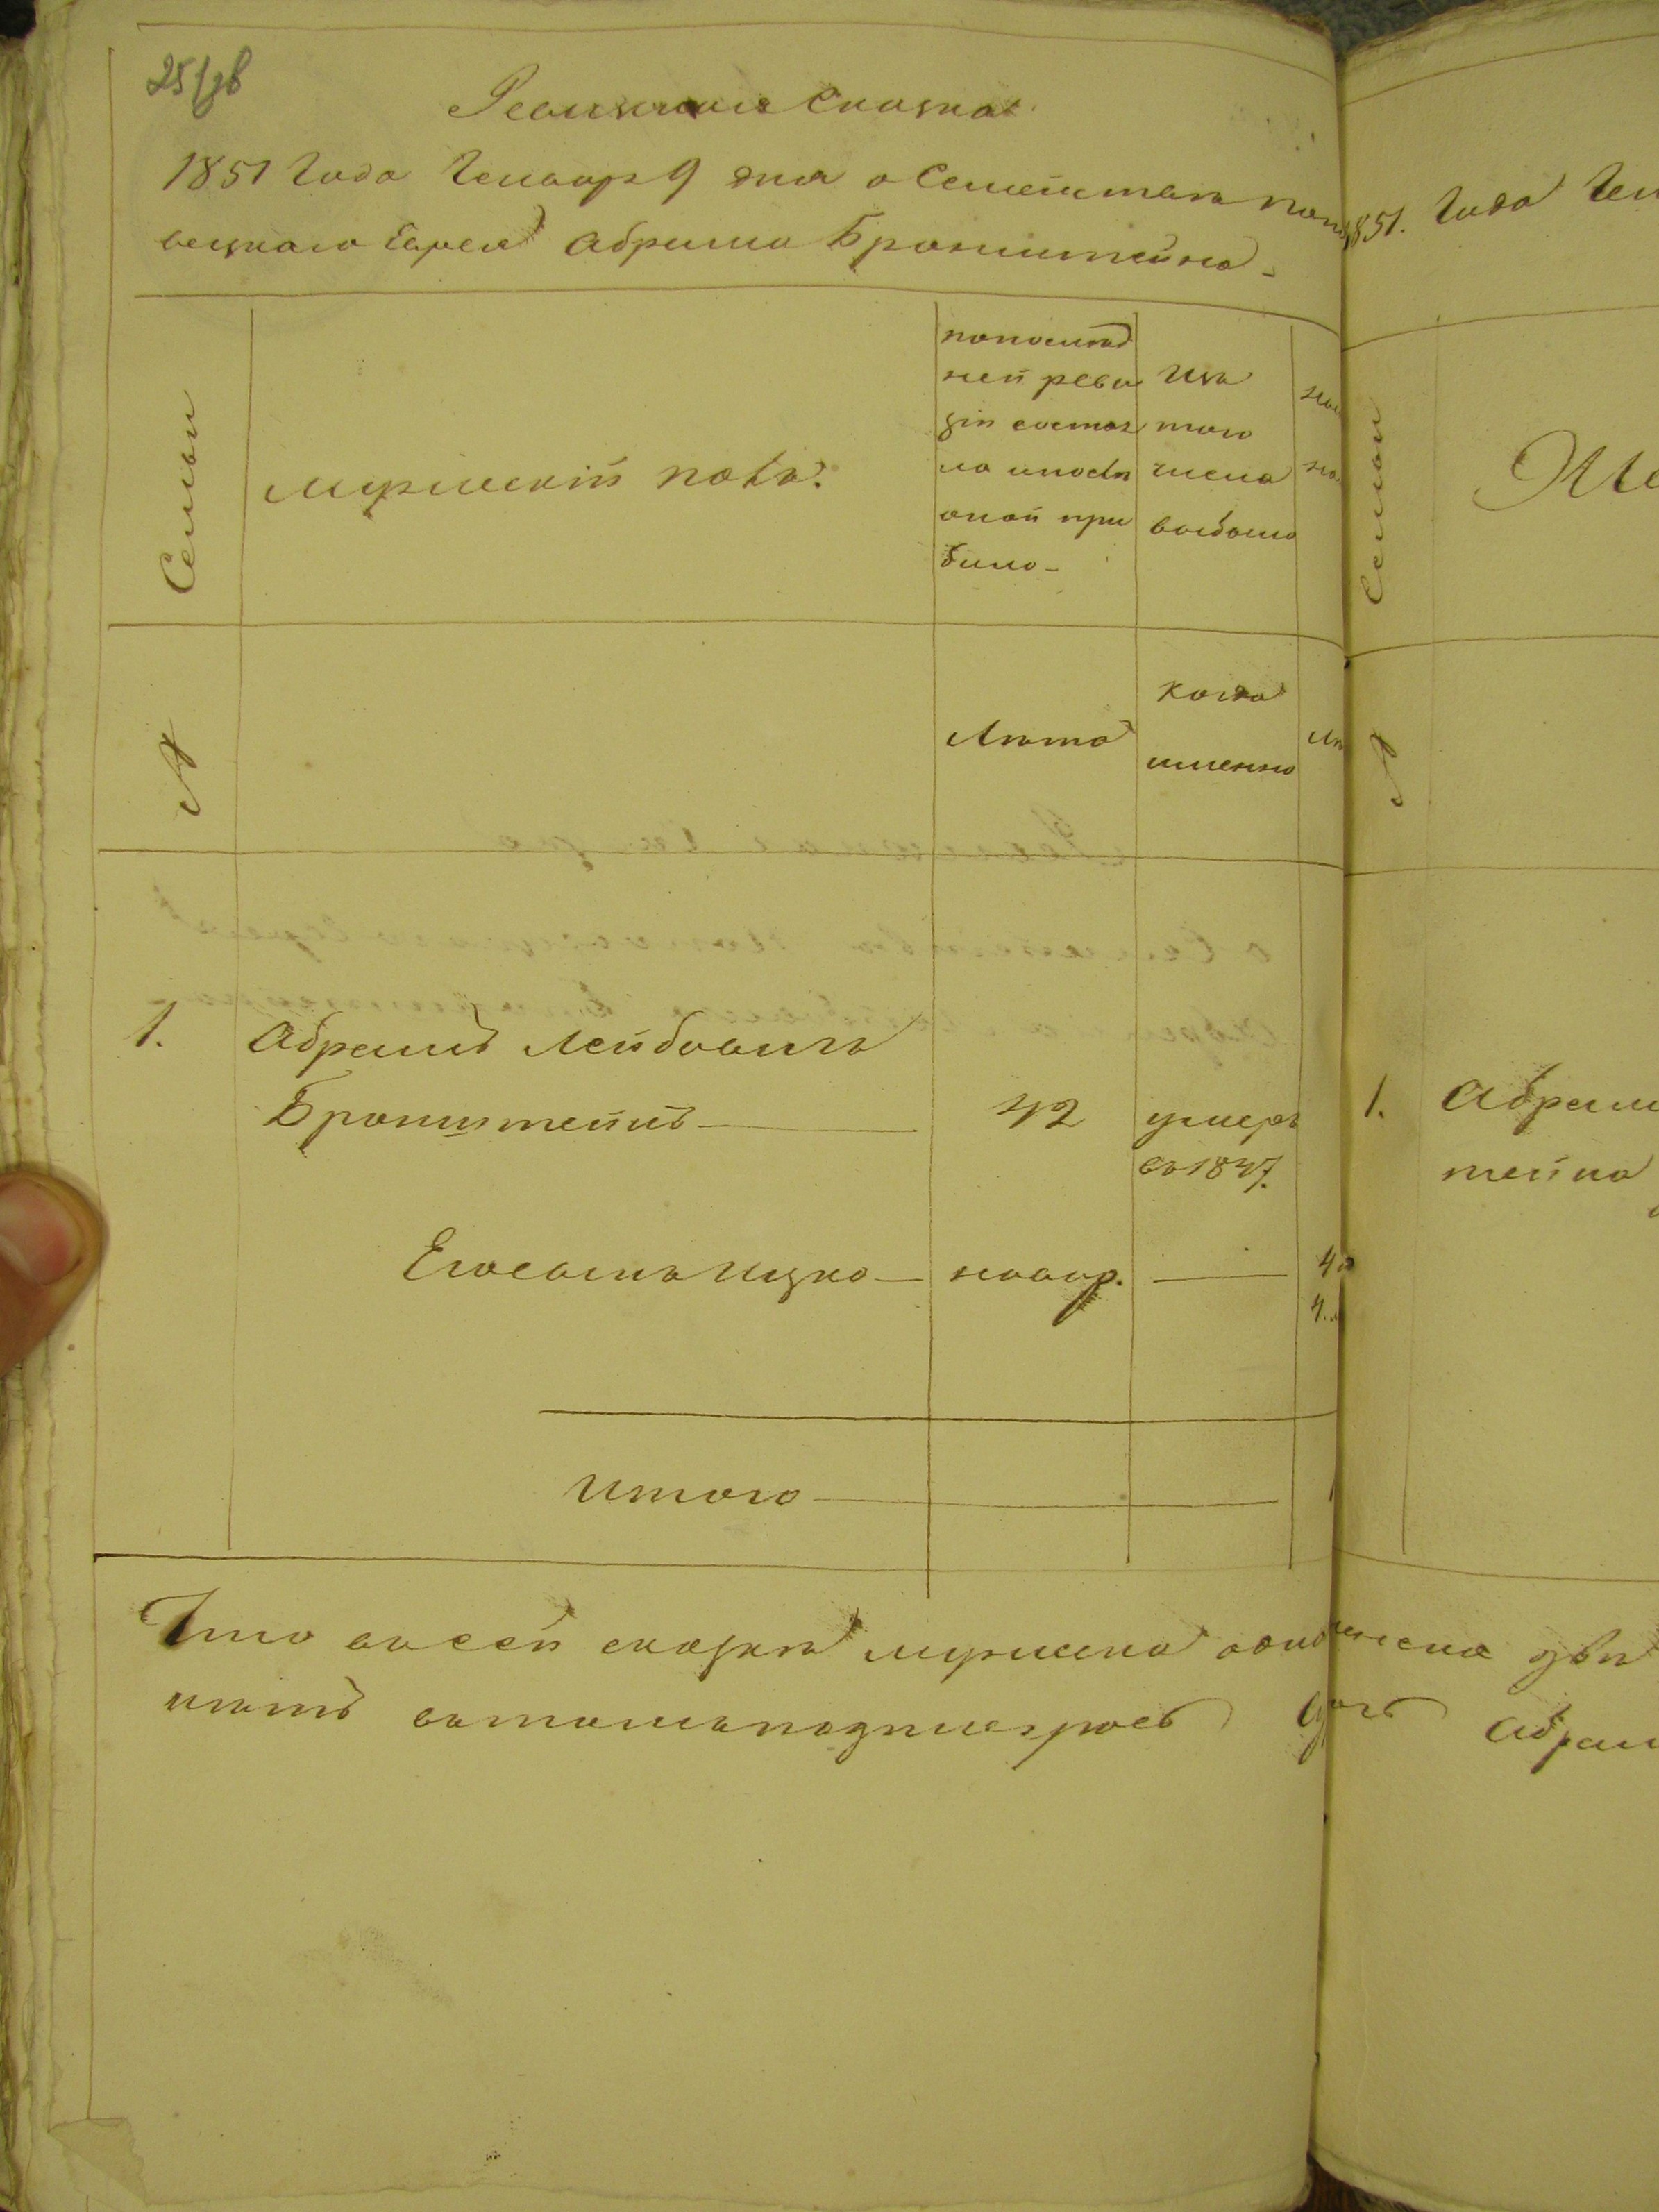 25/зв
Ревизская Сказка
1851 Года Генвар 9 дня о Семействѣ
вецкаго Еврея Абрама Бронштейна
Семьи
мужескій полъ.
попослѣд
ней реви
зіи состоя
ло ипослѣ
оной при
было
Изъ
того
числа
выбыло
Лѣта
когда
именно
1. Абрамъ Лейбовичъ
Бронштейнъ 42 умеръ
въ 1847.
Его сынъ Ицко новор.
Итого
Что въ сей сказкѣ мужеска
1851. Года Ген
Семьи
1. Абрам
тейна
Абрам